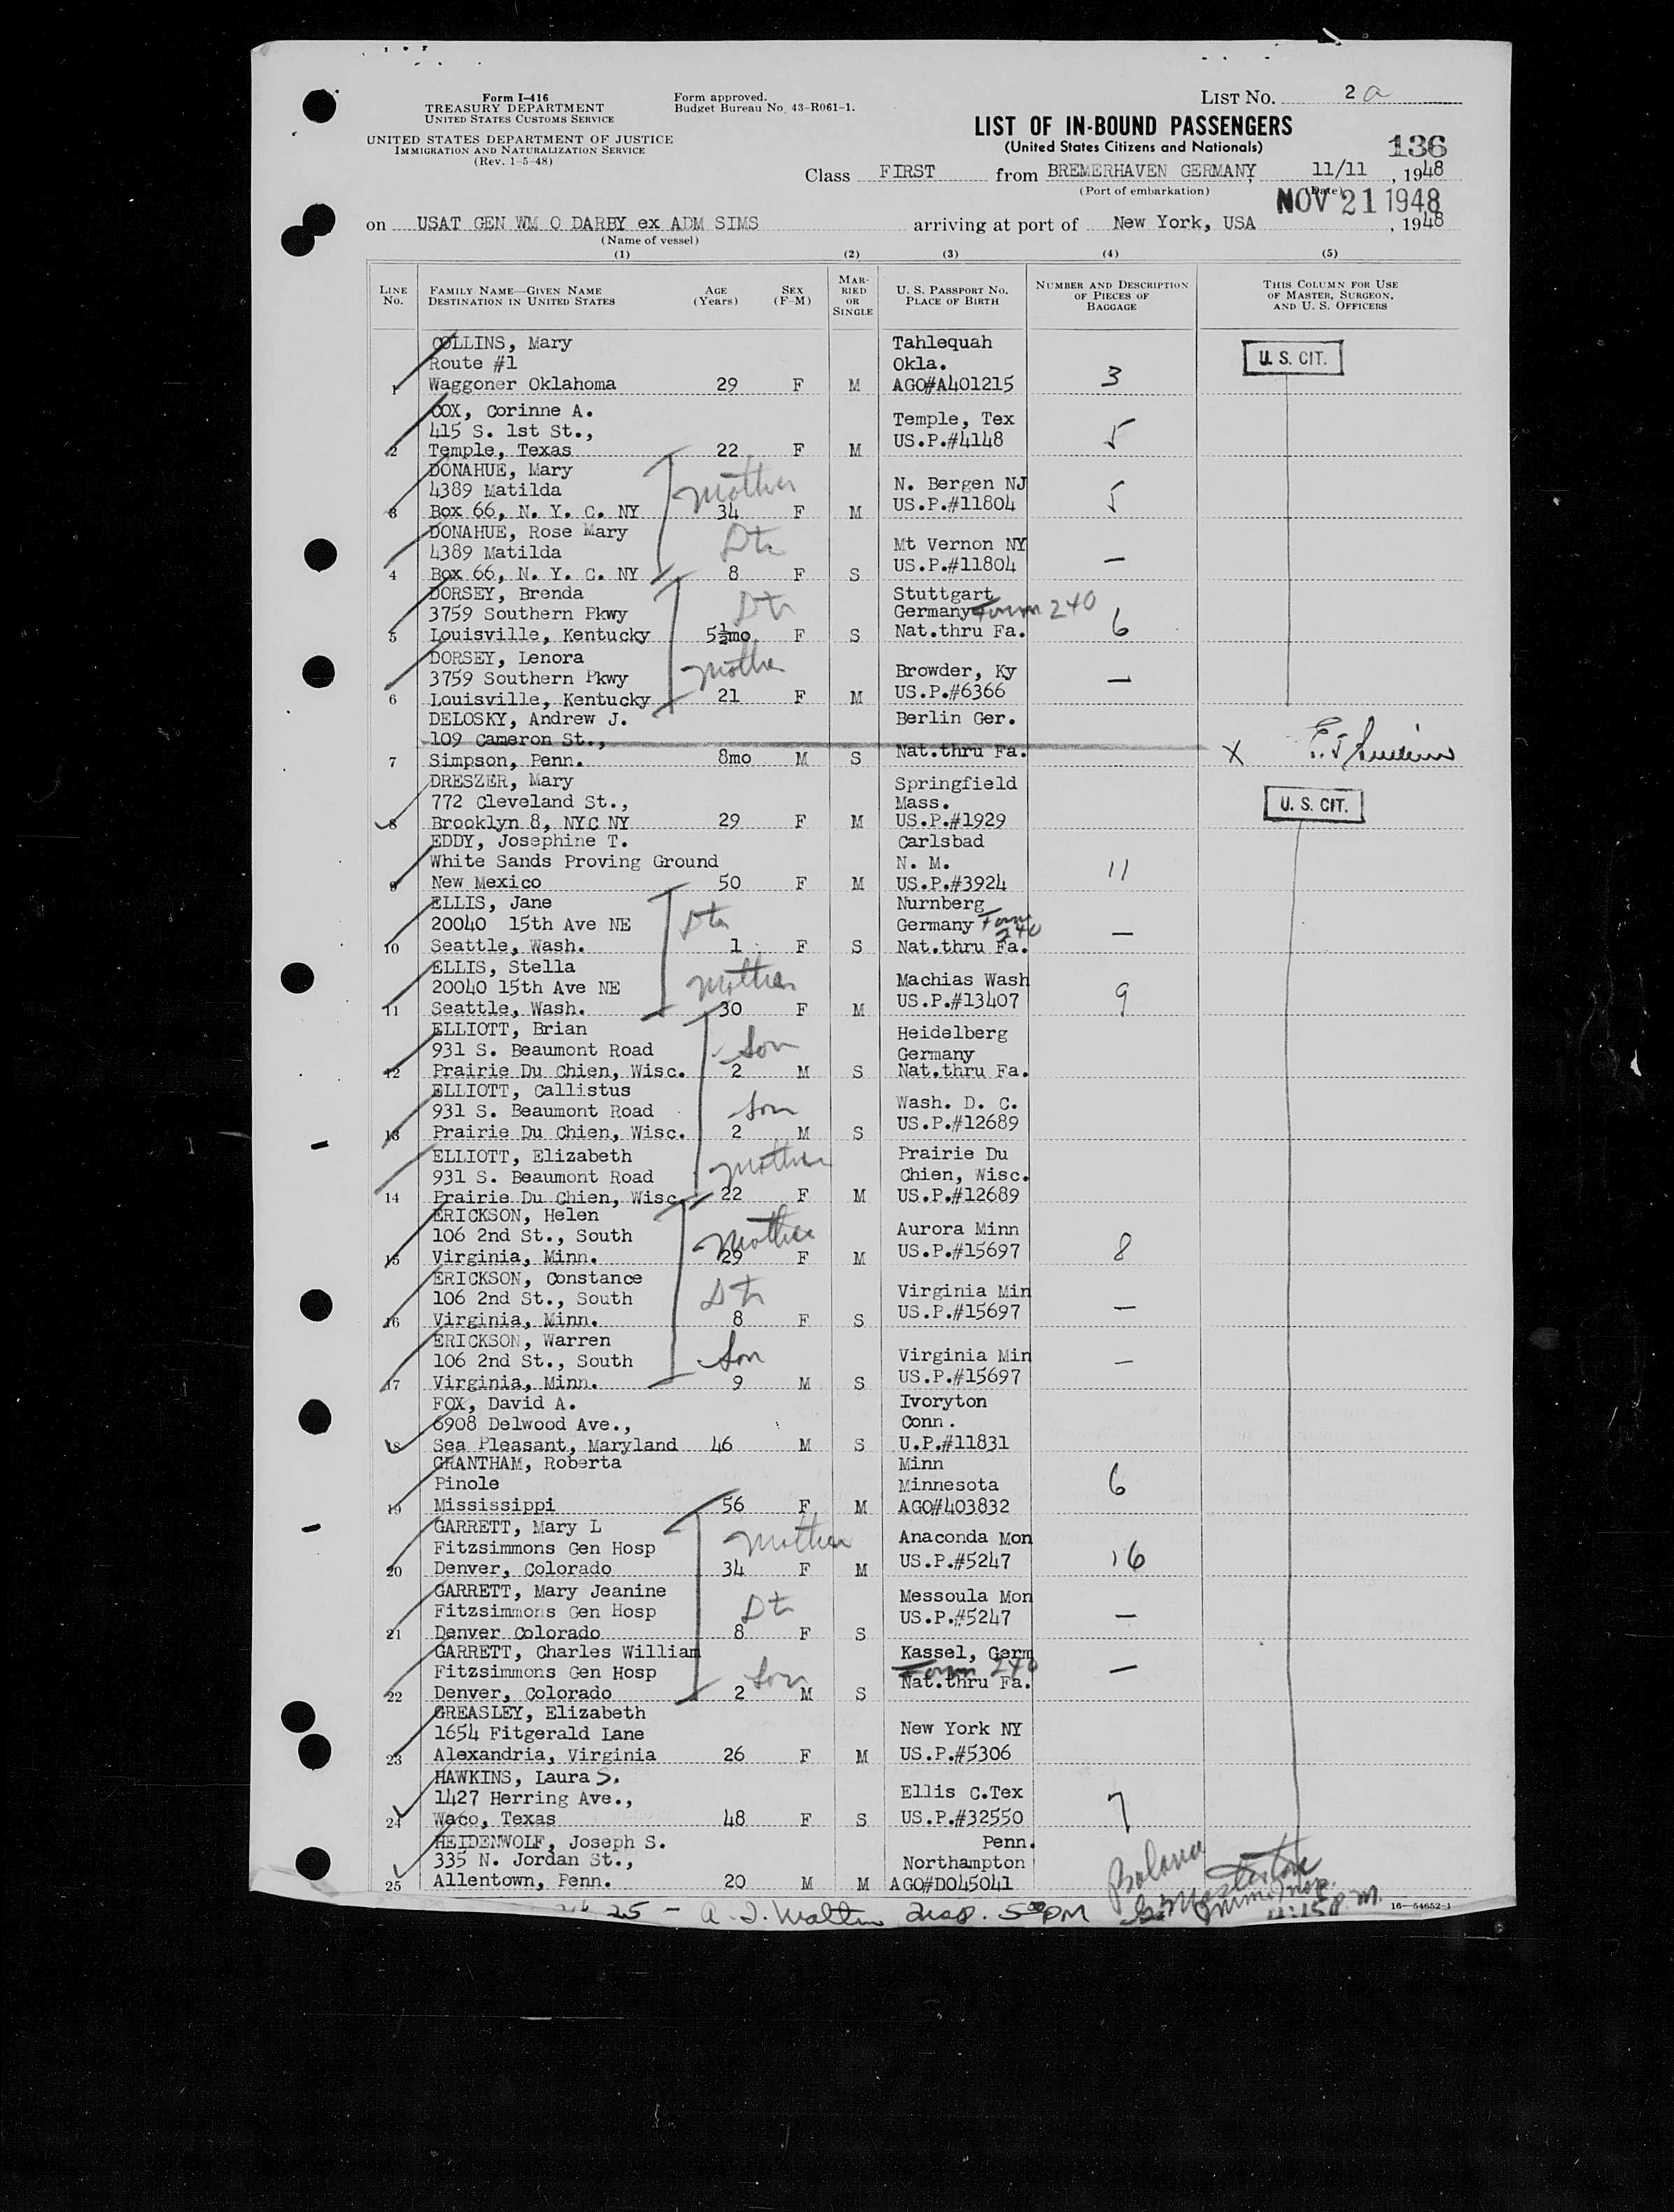 Form I-416
TREASURY DEPARTMENT
UNITED STATES CUSTOMS SERVICE
UNITED STATES DEPARTMENT OF JUSTICE
IMMIGRATION AND NATURALIZATION SERVICE
(Rev. 1-5-48)
Form approved.
Budget Bureau No. 43-R061-1.
LIST NO. 2 a
LIST OF IN-BOUND PASSENGERS
(United States Citizens and Nationals)
136
Class FIRST from BREMERHAVEN GERMANY, 11/11, 1948
(Port of embarkation) (Date)
NOV 21 1948
on USAT GEN WM O DARBY ex ADM SIMS arriving at port of New York, USA, 1948
(Name of vessel)
(1) (2) (3) (4) (5)
LINE No. FAMILY NAME—GIVEN NAME DESTINATION IN UNITED STATES AGE (Years) SEX (F-M) MARRIED OR SINGLE U. S. PASSPORT NO. PLACE OF BIRTH NUMBER AND DESCRIPTION OF PIECES OF BAGGAGE THIS COLUMN FOR USE OF MASTER, SURGEON, AND U. S. OFFICERS
COLLINS, Mary Tahlequah
Route #1 Okla. U. S. CIT.
1 Waggoner Oklahoma 29 F M AGO#A401215 3
COX, Corinne A. Temple, Tex
415 S. 1st St., US.P.#4148 5
2 Temple, Texas 22 F M
DONAHUE, Mary Mother N. Bergen NJ
4389 Matilda US.P.#11804 5
3 Box 66, N. Y. C. NY 34 F M
DONAHUE, Rose Mary Dtr Mt Vernon NY
4389 Matilda US.P.#11804 —
4 Box 66, N. Y. C. NY 8 F S
DORSEY, Brenda Dtr Stuttgart
3759 Southern Pkwy Germany Form 240
5 Louisville, Kentucky 5½mo F S Nat.thru Fa. 6
DORSEY, Lenora Mother Browder, Ky
3759 Southern Pkwy US.P.#6366 —
6 Louisville, Kentucky 21 F M
DELOSKY, Andrew J. Berlin Ger.
109 Cameron St., Nat.thru Fa. X
7 Simpson, Penn. 8mo M S
DRESZER, Mary Springfield
772 Cleveland St., Mass. U. S. CIT.
8 Brooklyn 8, NYC NY 29 F M US.P.#1929
EDDY, Josephine T. Carlsbad
White Sands Proving Ground N. M. 11
9 New Mexico 50 F M US.P.#3924
ELLIS, Jane Dtr Nurnberg
20040 15th Ave NE Germany Form 240
10 Seattle, Wash. 1 F S Nat.thru Fa. —
ELLIS, Stella Mother Machias Wash
20040 15th Ave NE US.P.#13407 9
11 Seattle, Wash. 30 F M
ELLIOTT, Brian Son Heidelberg
931 S. Beaumont Road Germany
12 Prairie Du Chien, Wisc. 2 M S Nat.thru Fa.
ELLIOTT, Callistus Son Wash. D. C.
931 S. Beaumont Road US.P.#12689
13 Prairie Du Chien, Wisc. 2 M S
ELLIOTT, Elizabeth Mother Prairie Du
931 S. Beaumont Road Chien, Wisc.
14 Prairie Du Chien, Wisc. 22 F M US.P.#12689
ERICKSON, Helen Mother Aurora Minn
106 2nd St., South US.P.#15697 8
15 Virginia, Minn. 29 F M
ERICKSON, Constance Dtr Virginia Min
106 2nd St., South US.P.#15697 —
16 Virginia, Minn. 8 F S
ERICKSON, Warren Son Virginia Min
106 2nd St., South US.P.#15697 —
17 Virginia, Minn. 9 M S
FOX, David A. Ivoryton
6908 Delwood Ave., Conn.
18 Sea Pleasant, Maryland 46 M S U.P.#11831
GRANTHAM, Roberta Minn
Pinole Minnesota 6
19 Mississippi 56 F M AGO#403832
GARRETT, Mary L Mother Anaconda Mon
Fitzsimmons Gen Hosp US.P.#5247 16
20 Denver, Colorado 34 F M
GARRETT, Mary Jeanine Dtr Messoula Mon
Fitzsimmons Gen Hosp US.P.#5247 —
21 Denver Colorado 8 F S
GARRETT, Charles William Son Kassel, Germ
Fitzsimmons Gen Hosp Form 240 —
22 Denver, Colorado 2 M S Nat.thru Fa.
GREASLEY, Elizabeth New York NY
1654 Fitgerald Lane US.P.#5306
23 Alexandria, Virginia 26 F M
HAWKINS, Laura S. Ellis C.Tex
1427 Herring Ave., US.P.#32550 7
24 Waco, Texas 48 F S
HEIDENWOLF, Joseph S. Penn.
335 N. Jordan St., Northampton
25 Allentown, Penn. 20 M M AGO#D045041
25 - Insp. 5:00 PM Immi. Insp. P.M.
16—54652-1